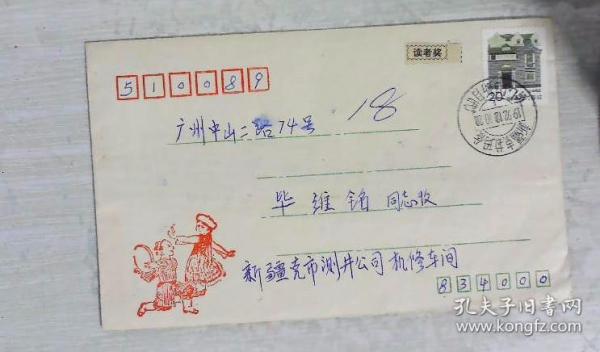 读者奖
510089
20
18
广州中山二路74号
毕维铭 同志收
新疆克市测井公司机修车间
834000
孔夫子旧书网
www.kongfz.com